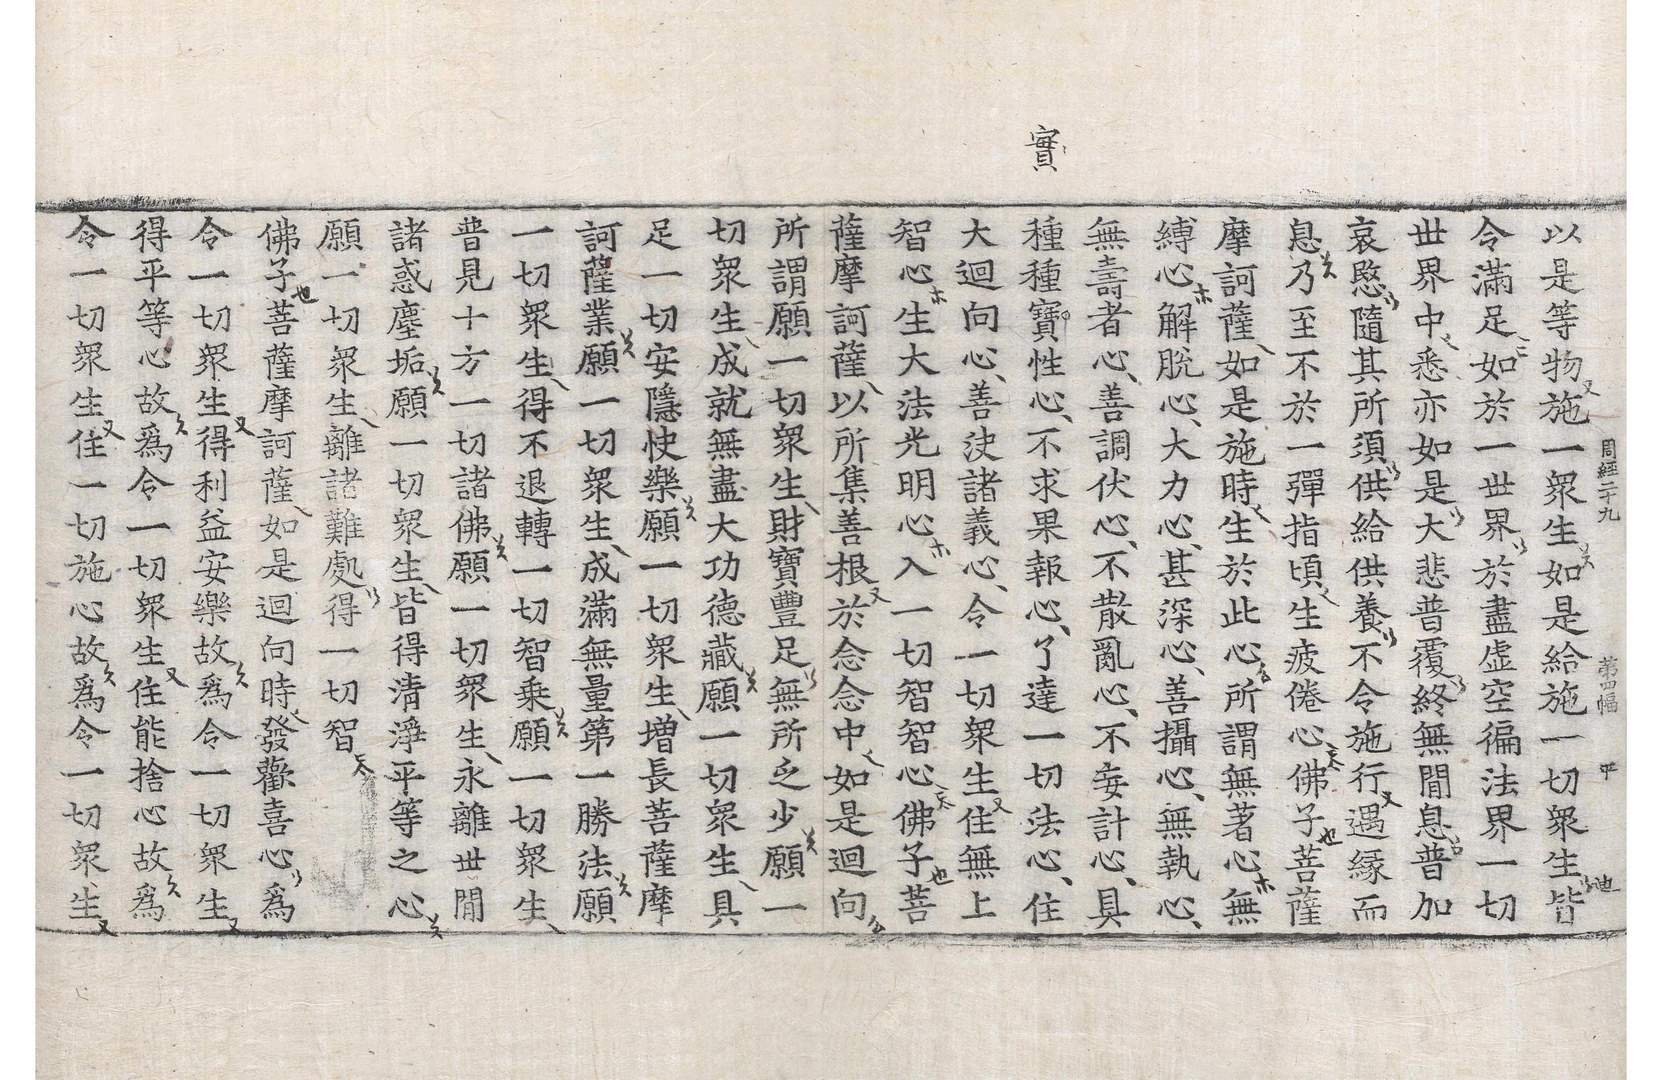 實
周經二十九 第四幅 平 也
以是等物施一衆生如是給施一切衆生皆
令滿足如於一世界於盡虛空徧法界一切
世界中悉亦如是大悲普覆終無間息普加
哀愍隨其所須供給供養不令施行遇緣而
息乃至不於一彈指頃生疲倦心佛子菩薩
摩訶薩如是施時生於此心所謂無著心無
縛心解脫心大力心甚深心善攝心無執心
無壽者心善調伏心不散亂心不妄計心具
種種寶性心不求果報心了達一切法心住
大迴向心善決諸義心令一切衆生住無上
智心生大法光明心入一切智智心佛子菩
薩摩訶薩以所集善根於念念中如是迴向
所謂願一切衆生財寶豐足無所乏少願一
切衆生成就無盡大功德藏願一切衆生具
足一切安隱快樂願一切衆生增長菩薩摩
訶薩業願一切衆生成滿無量第一勝法願
一切衆生得不退轉一切智乘願一切衆生
普見十方一切諸佛願一切衆生永離世間
諸惑塵垢願一切衆生皆得清淨平等之心
願一切衆生離諸難處得一切智
佛子菩薩摩訶薩如是迴向時發歡喜心爲
令一切衆生得利益安樂故爲令一切衆生
得平等心故爲令一切衆生住能捨心故爲
令一切衆生住一切施心故爲令一切衆生